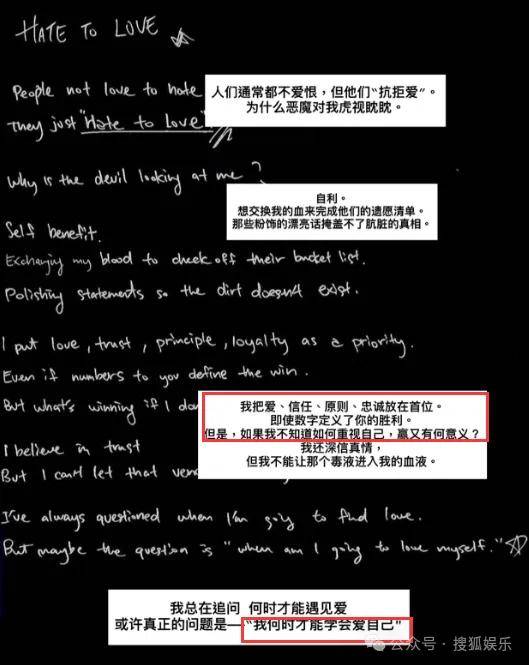 HATE TO LOVE
People not love to hate
They just "Hate to Love"
人们通常都不爱恨，但他们“抗拒爱”。
为什么恶魔对我虎视眈眈。
Why is the devil looking at me?
自利。
想交换我的血来完成他们的遗愿清单。
那些粉饰的漂亮话掩盖不了肮脏的真相。
Self benefit.
Exchanging my blood to check off their bucket list.
Polishing statements so the dirt doesn't exist.
I put love, trust, principle, loyalty as a priority.
Even if numbers to you define the win.
But what's winning if I
我把爱、信任、原则、忠诚放在首位。
即使数字定义了你的胜利。
但是，如果我不知道如何重视自己，赢又有何意义？
我还深信真情，
但我不能让那个毒液进入我的血液。
I believe in trust
But I can't let that
I've always questioned when I'm going to find love.
But maybe the question is "when am I going to love myself."
我总在追问 何时才能遇见爱
或许真正的问题是—“我何时才能学会爱自己”
公众号·搜狐娱乐